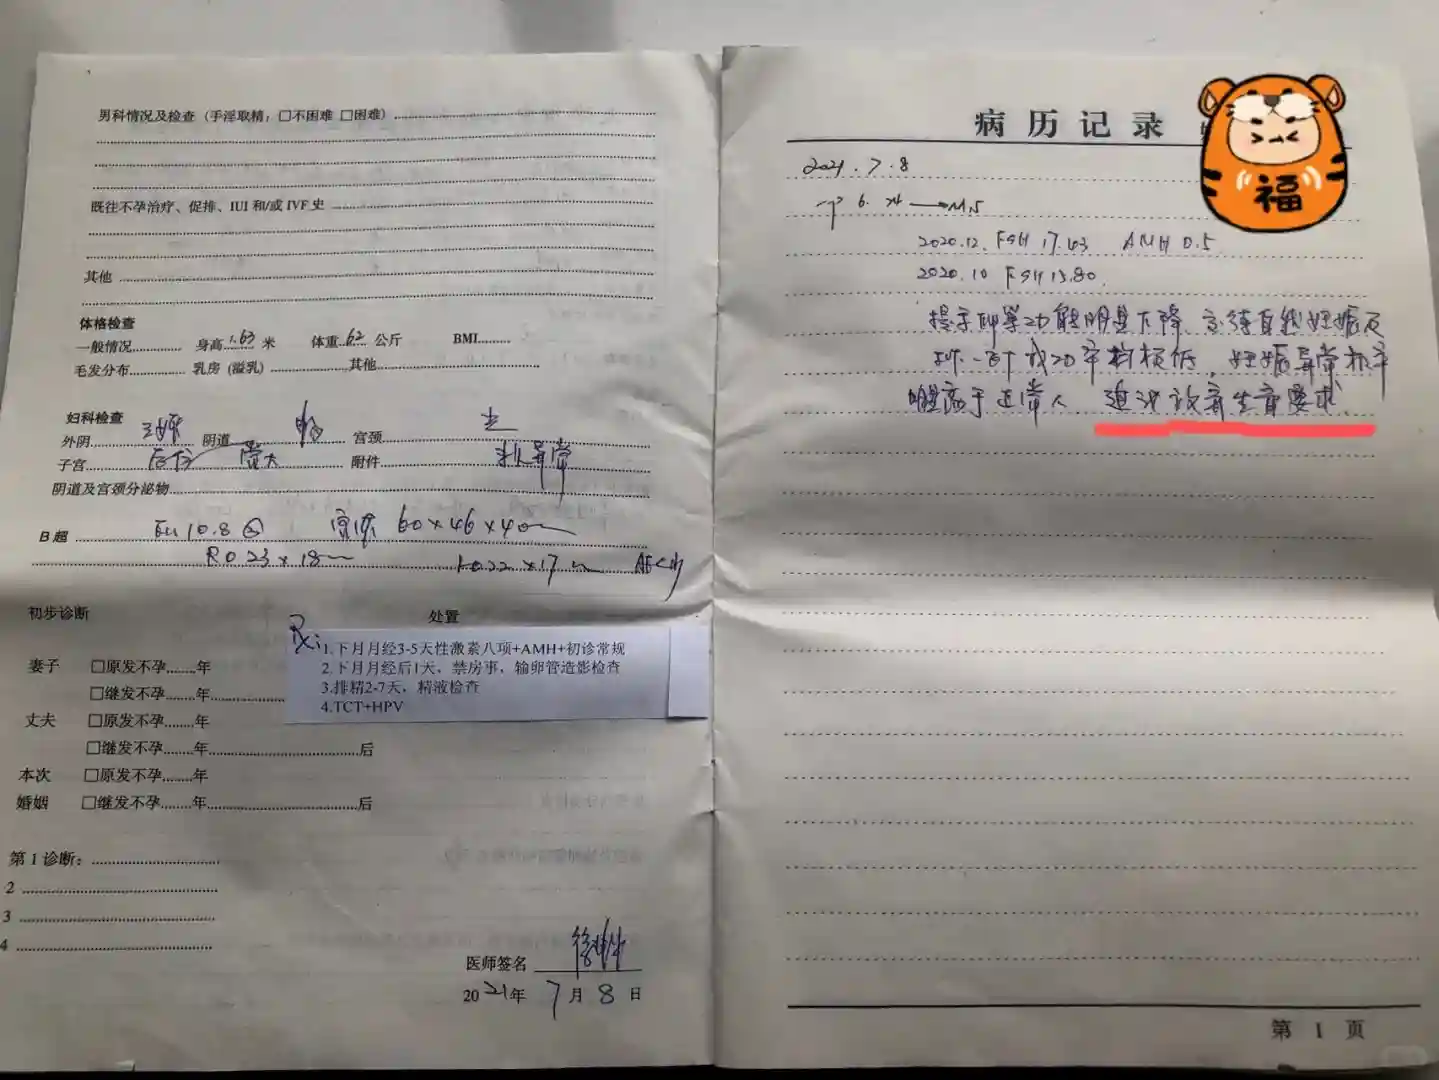 男科情况及检查（手淫取精：□不困难 □困难）
既往不孕治疗、促排、IUI 和/或 IVF 史
其他
体格检查
一般情况 身高 1.63 米 体重 62 公斤 BMI
毛发分布 乳房 (溢乳) 其他
妇科检查
外阴 阴道 畅 宫颈 光
子宫 后位 常大 附件 未及异常
阴道及宫颈分泌物
B超 Em 10.8 宫体 60×46×40mm
RO 23×18mm LO 22×17mm
初步诊断 处置
Rx: 1.下月月经3-5天性激素八项+AMH+初诊常规
2.下月月经后1天，禁房事，输卵管造影检查
3.排精2-7天，精液检查
4.TCT+HPV
妻子 □原发不孕……年
□继发不孕……年
丈夫 □原发不孕……年
□继发不孕……年……后
本次 □原发不孕……年
婚姻 □继发不孕……年……后
第 1 诊断：
2
3
4
医师签名
2021年 7月 8日
病历记录
2021.7.8
2020.12. FSH 17.43 AMH 0.5
2020.10 FSH 15.80
提示卵巢功能明显下降 自然妊娠及
成功率极低，妊娠异常机率
明显高于正常人 建议放弃生育要求
福
第 1 页